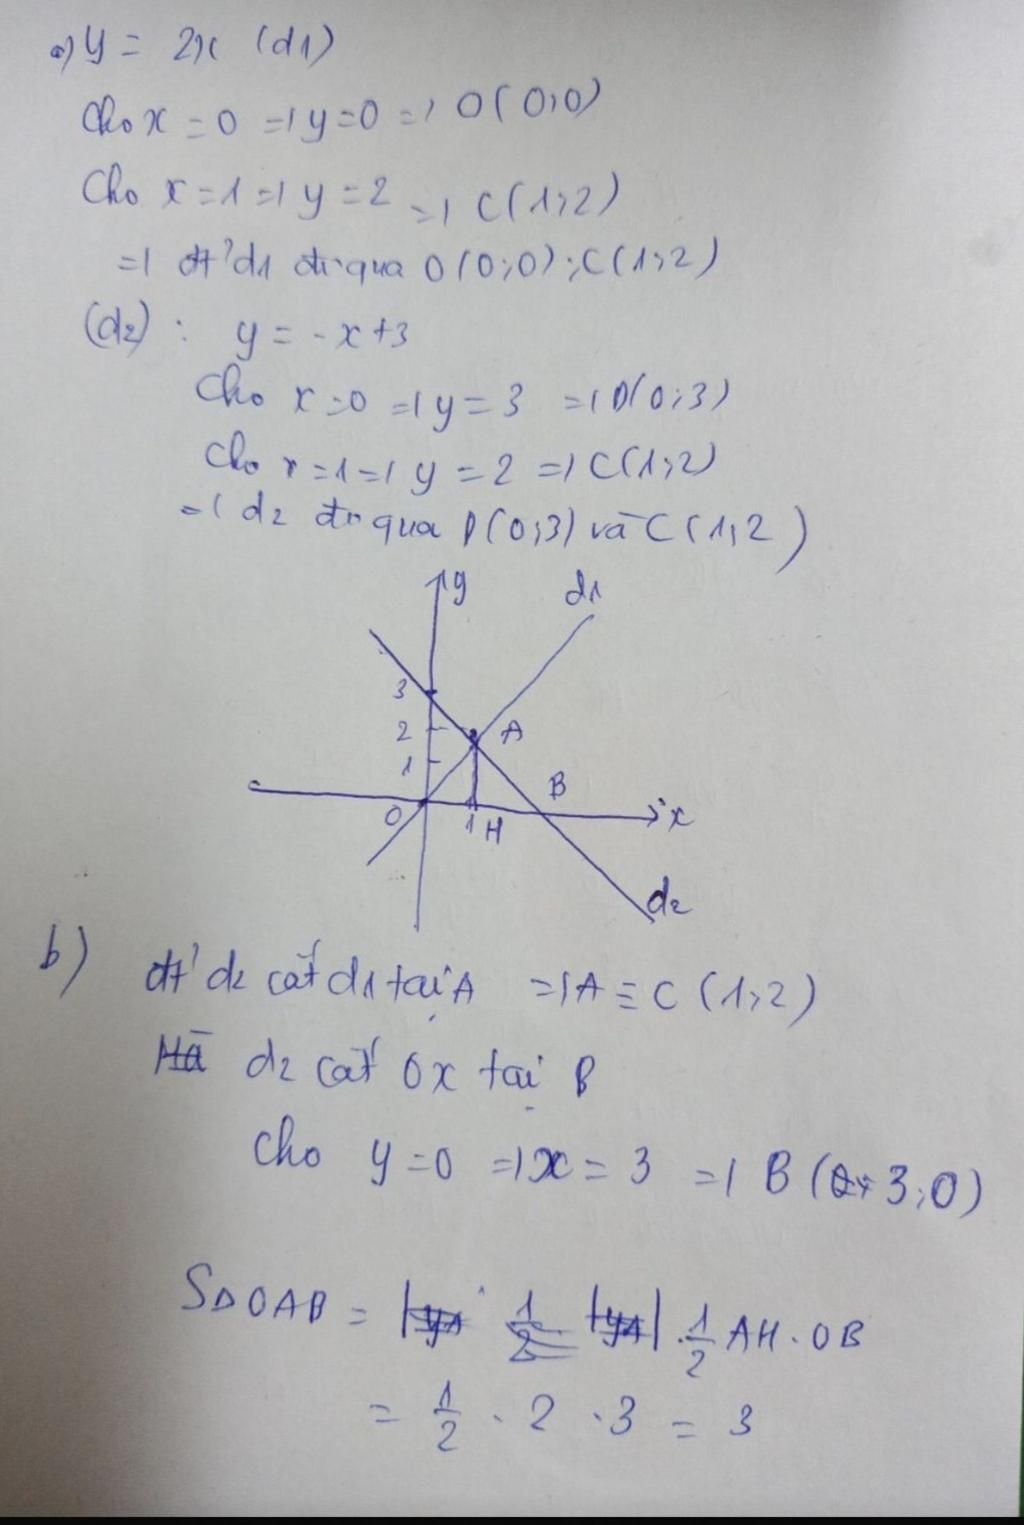 a) y = 2x (d1)
Cho x = 0 => y = 0 => O(0;0)
Cho x = 1 => y = 2 => C(1;2)
=> đt' d1 đi qua O(0;0); C(1;2)
(d2): y = -x+3
Cho x = 0 => y = 3 => D(0;3)
Cho x = 1 => y = 2 => C(1;2)
=> d2 đi qua D(0;3) và C(1;2)
y d1
3
2 A
1
B
O 1 H x
d2
b) đt' d2 cắt d1 tại A => A ≡ C (1;2)
d2 cắt Ox tại B
Cho y = 0 => x = 3 => B (3;0)
SΔOAB = 1/2 AH . OB
= 1/2 . 2 . 3 = 3